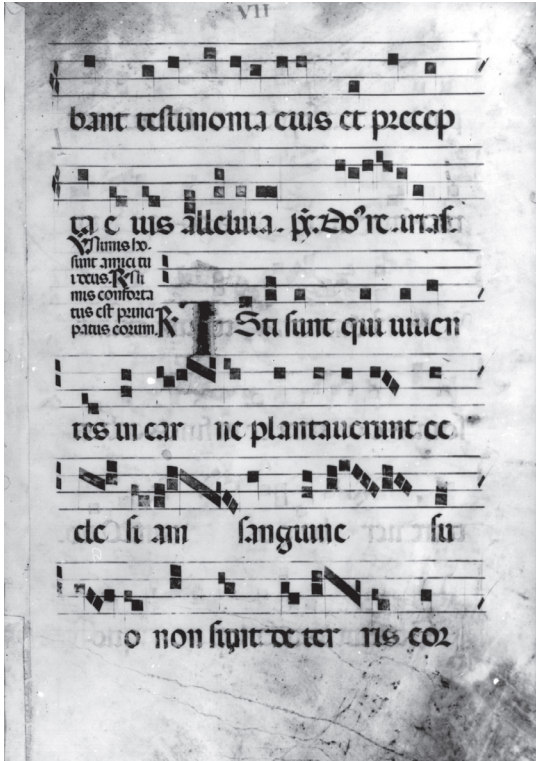 VII
bant testimonia eius et precep
ta e ius alleluia. p̄s. Do⁹ re.
Nimis ho-
sunt amici tu
i deus. R. Ni
mis conforta
tus est princi
patus eorum. R.
Isti sunt qui uiuen
tes in car ne plantauerunt ec
cle si am sanguine su
o non sunt de ter ris cor